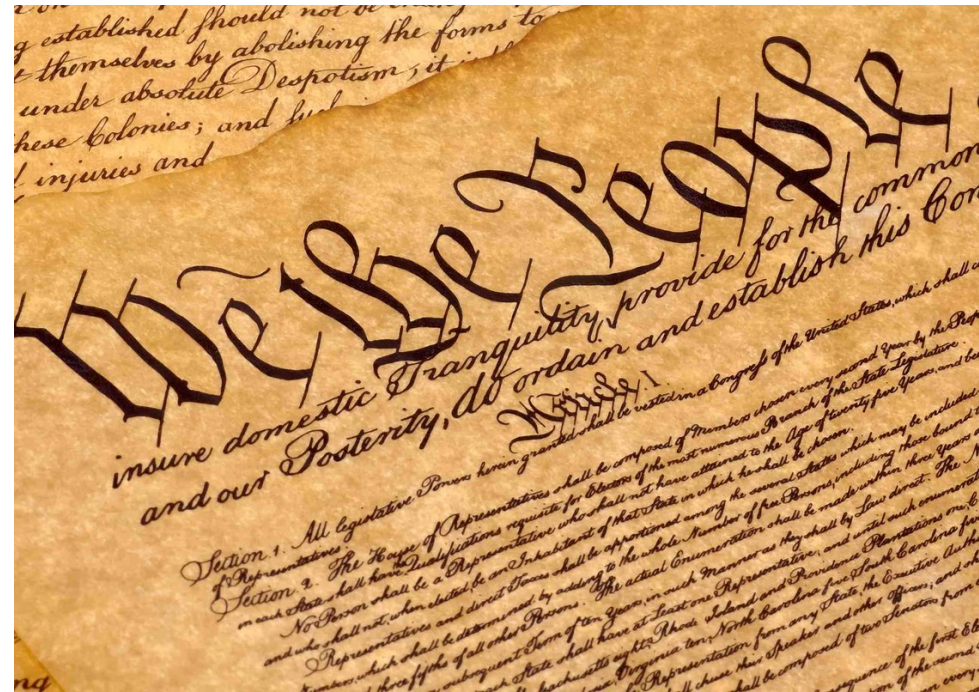 g established should not be
themselves by abolishing the forms to
under absolute Despotism; it
hese Colonies; and
injuries and
We the People
insure domestic Tranquility, provide for the common
and our Posterity, do ordain and establish this Con
Article I.
Section. 1. All legislative Powers herein granted shall be vested in a Congress of the United States, which shall c
of Representatives.
Section. 2. The House of Representatives shall be composed of Members chosen every second Year by the Peop
in each State shall have Qualifications requisite for Electors of the most numerous Branch of the State Legislature.
No Person shall be a Representative who shall not have attained to the Age of twenty five Years, and be
and who shall not, when elected, be an Inhabitant of that State in which he shall be chosen.
Representatives and direct Taxes shall be apportioned among the several States which may be included
Numbers, which shall be determined by adding to the whole Number of free Persons, including those bound
three fifths of all other Persons. The actual Enumeration shall be made within three Years a
subsequent Term of ten Years, in such Manner as they shall by Law direct. The N
each State shall have at Least one Representative; and until such enumera
chusetts eight, Rhode Island and Providence Plantations one, C
Virginia ten, North Carolina five, South Carolina five
Representation from any State, the Executive Auth
shall chuse their Speaker and other Officers; and
shall be composed of two Senators from
sequence of the first Ele
of the second
ng